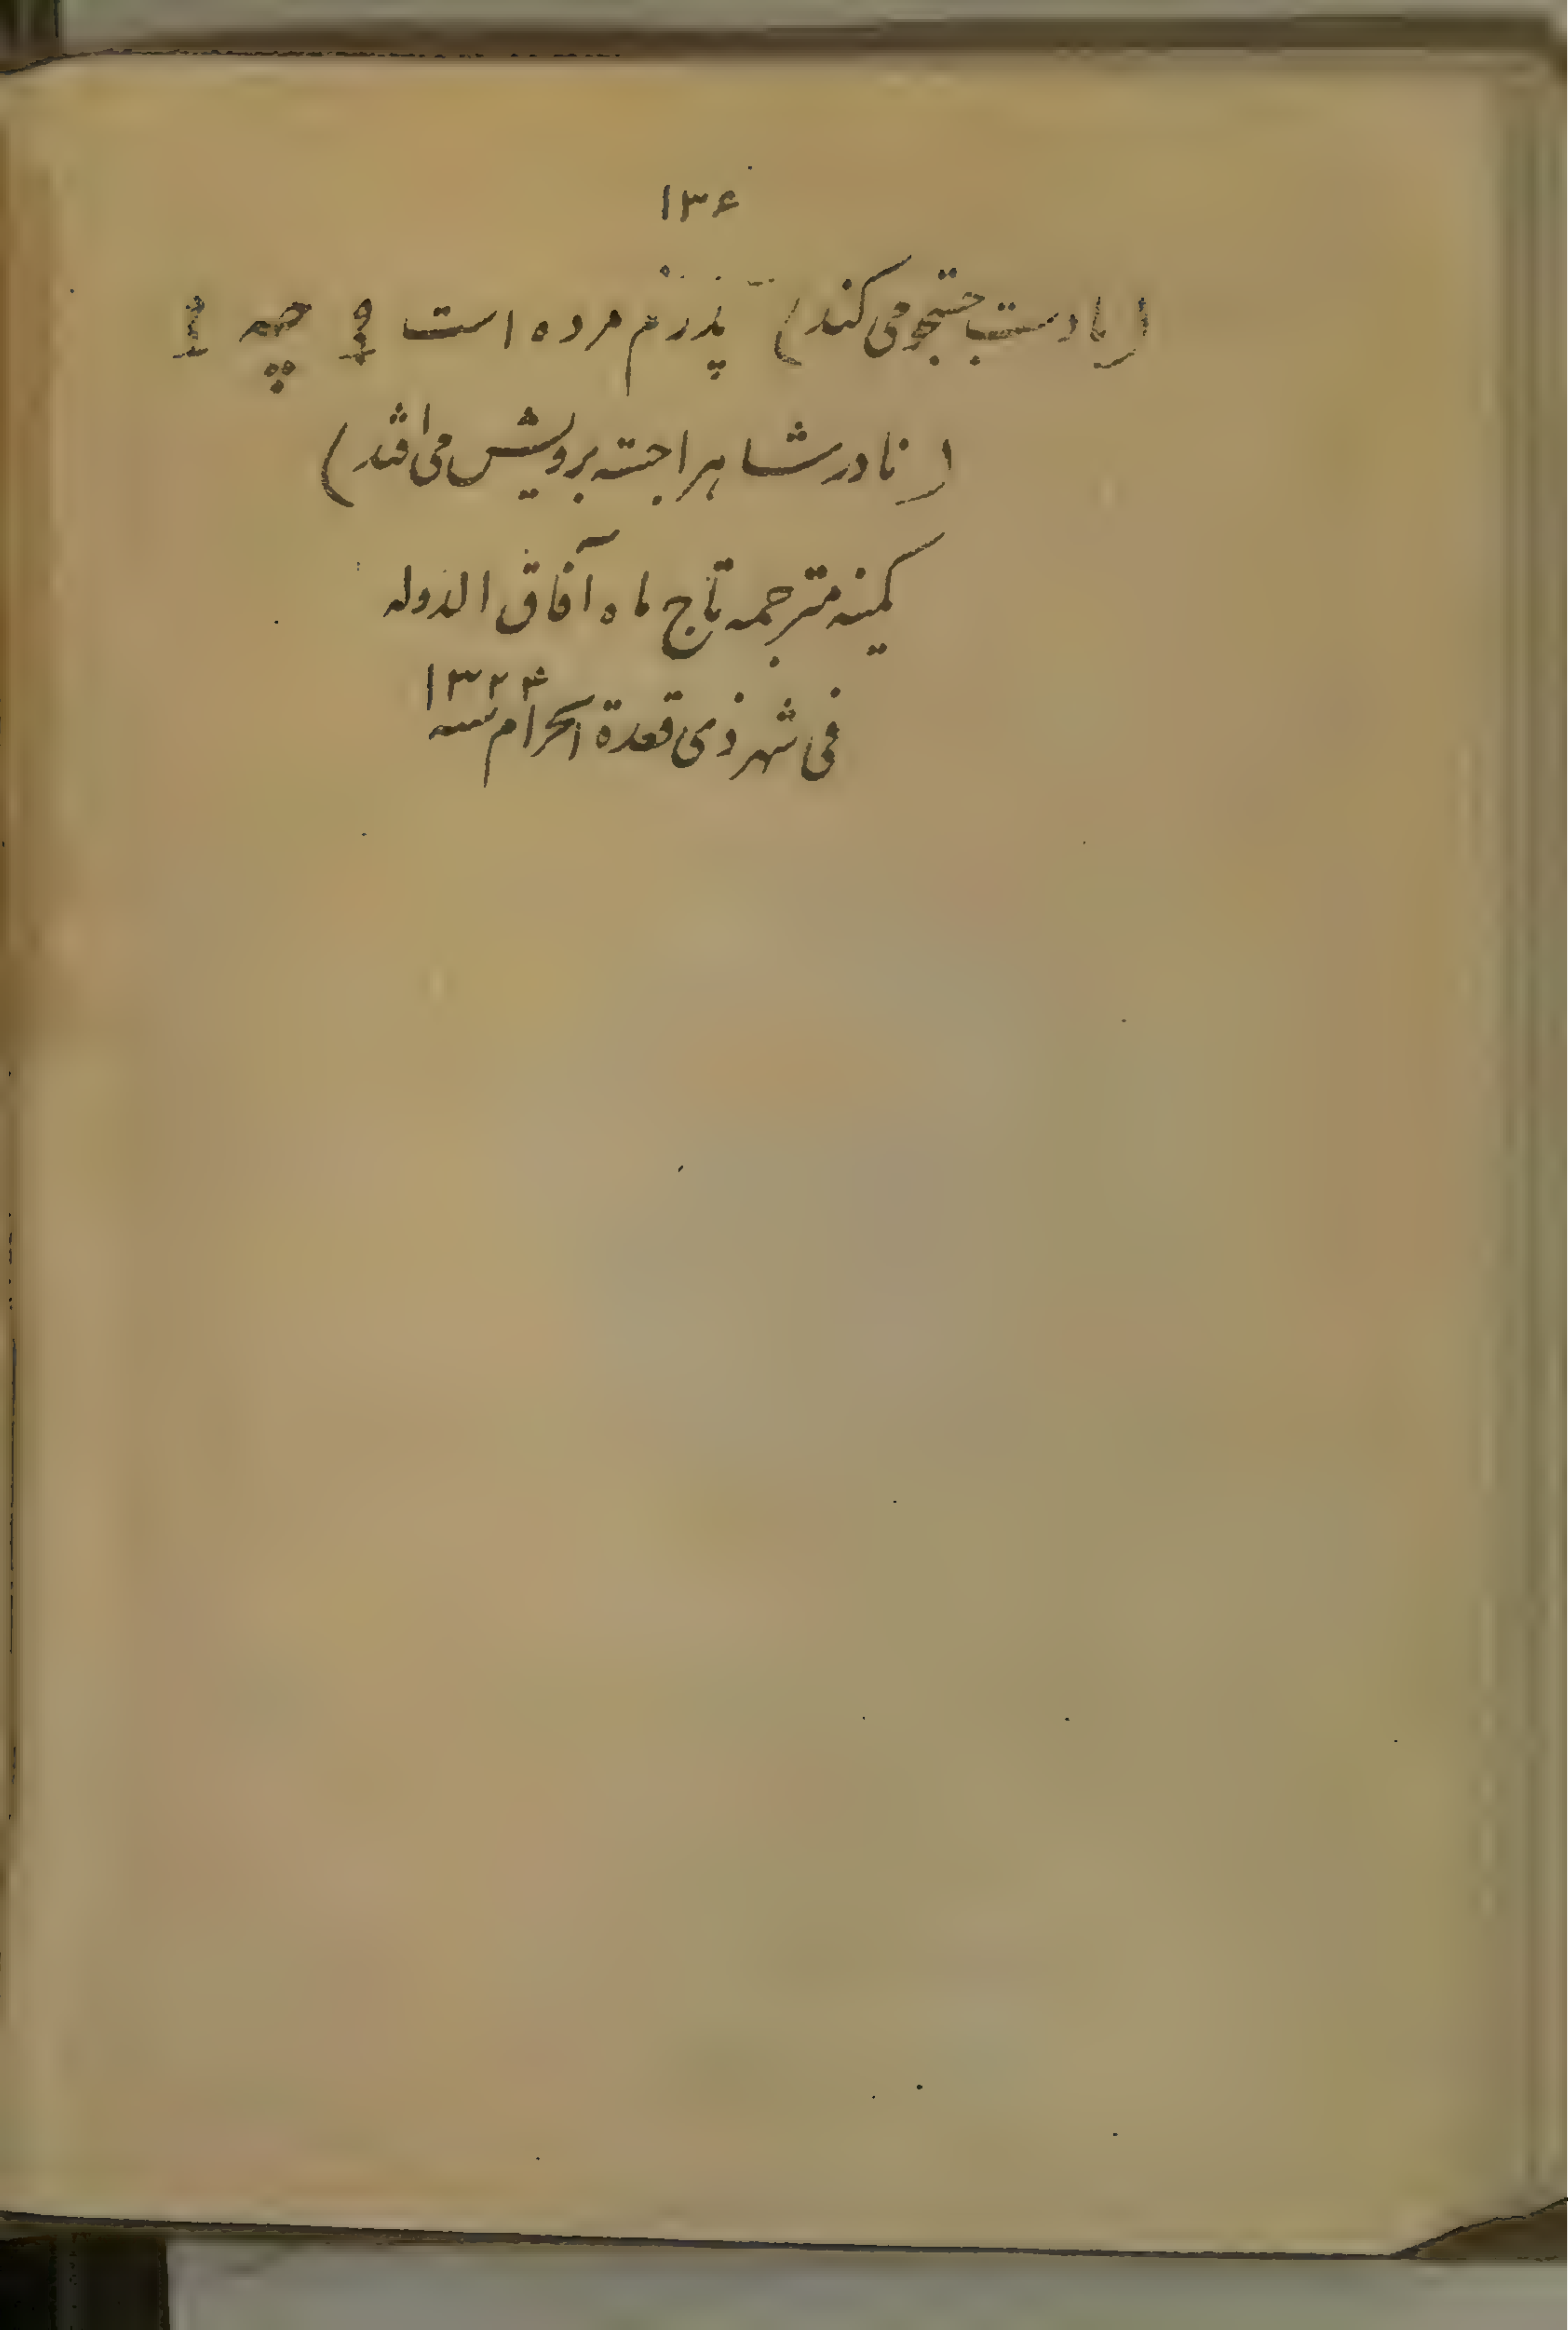 ۱۳۶
(با دست جستجو می کند) پدرم مرده است ؟ چه !
(نادر شاه را جسته برویش می افتد)
کمینه مترجمه تاج ماه آفاق الدوله
فی شهر ذی قعدة الحرام سنه ۱۳۲۳